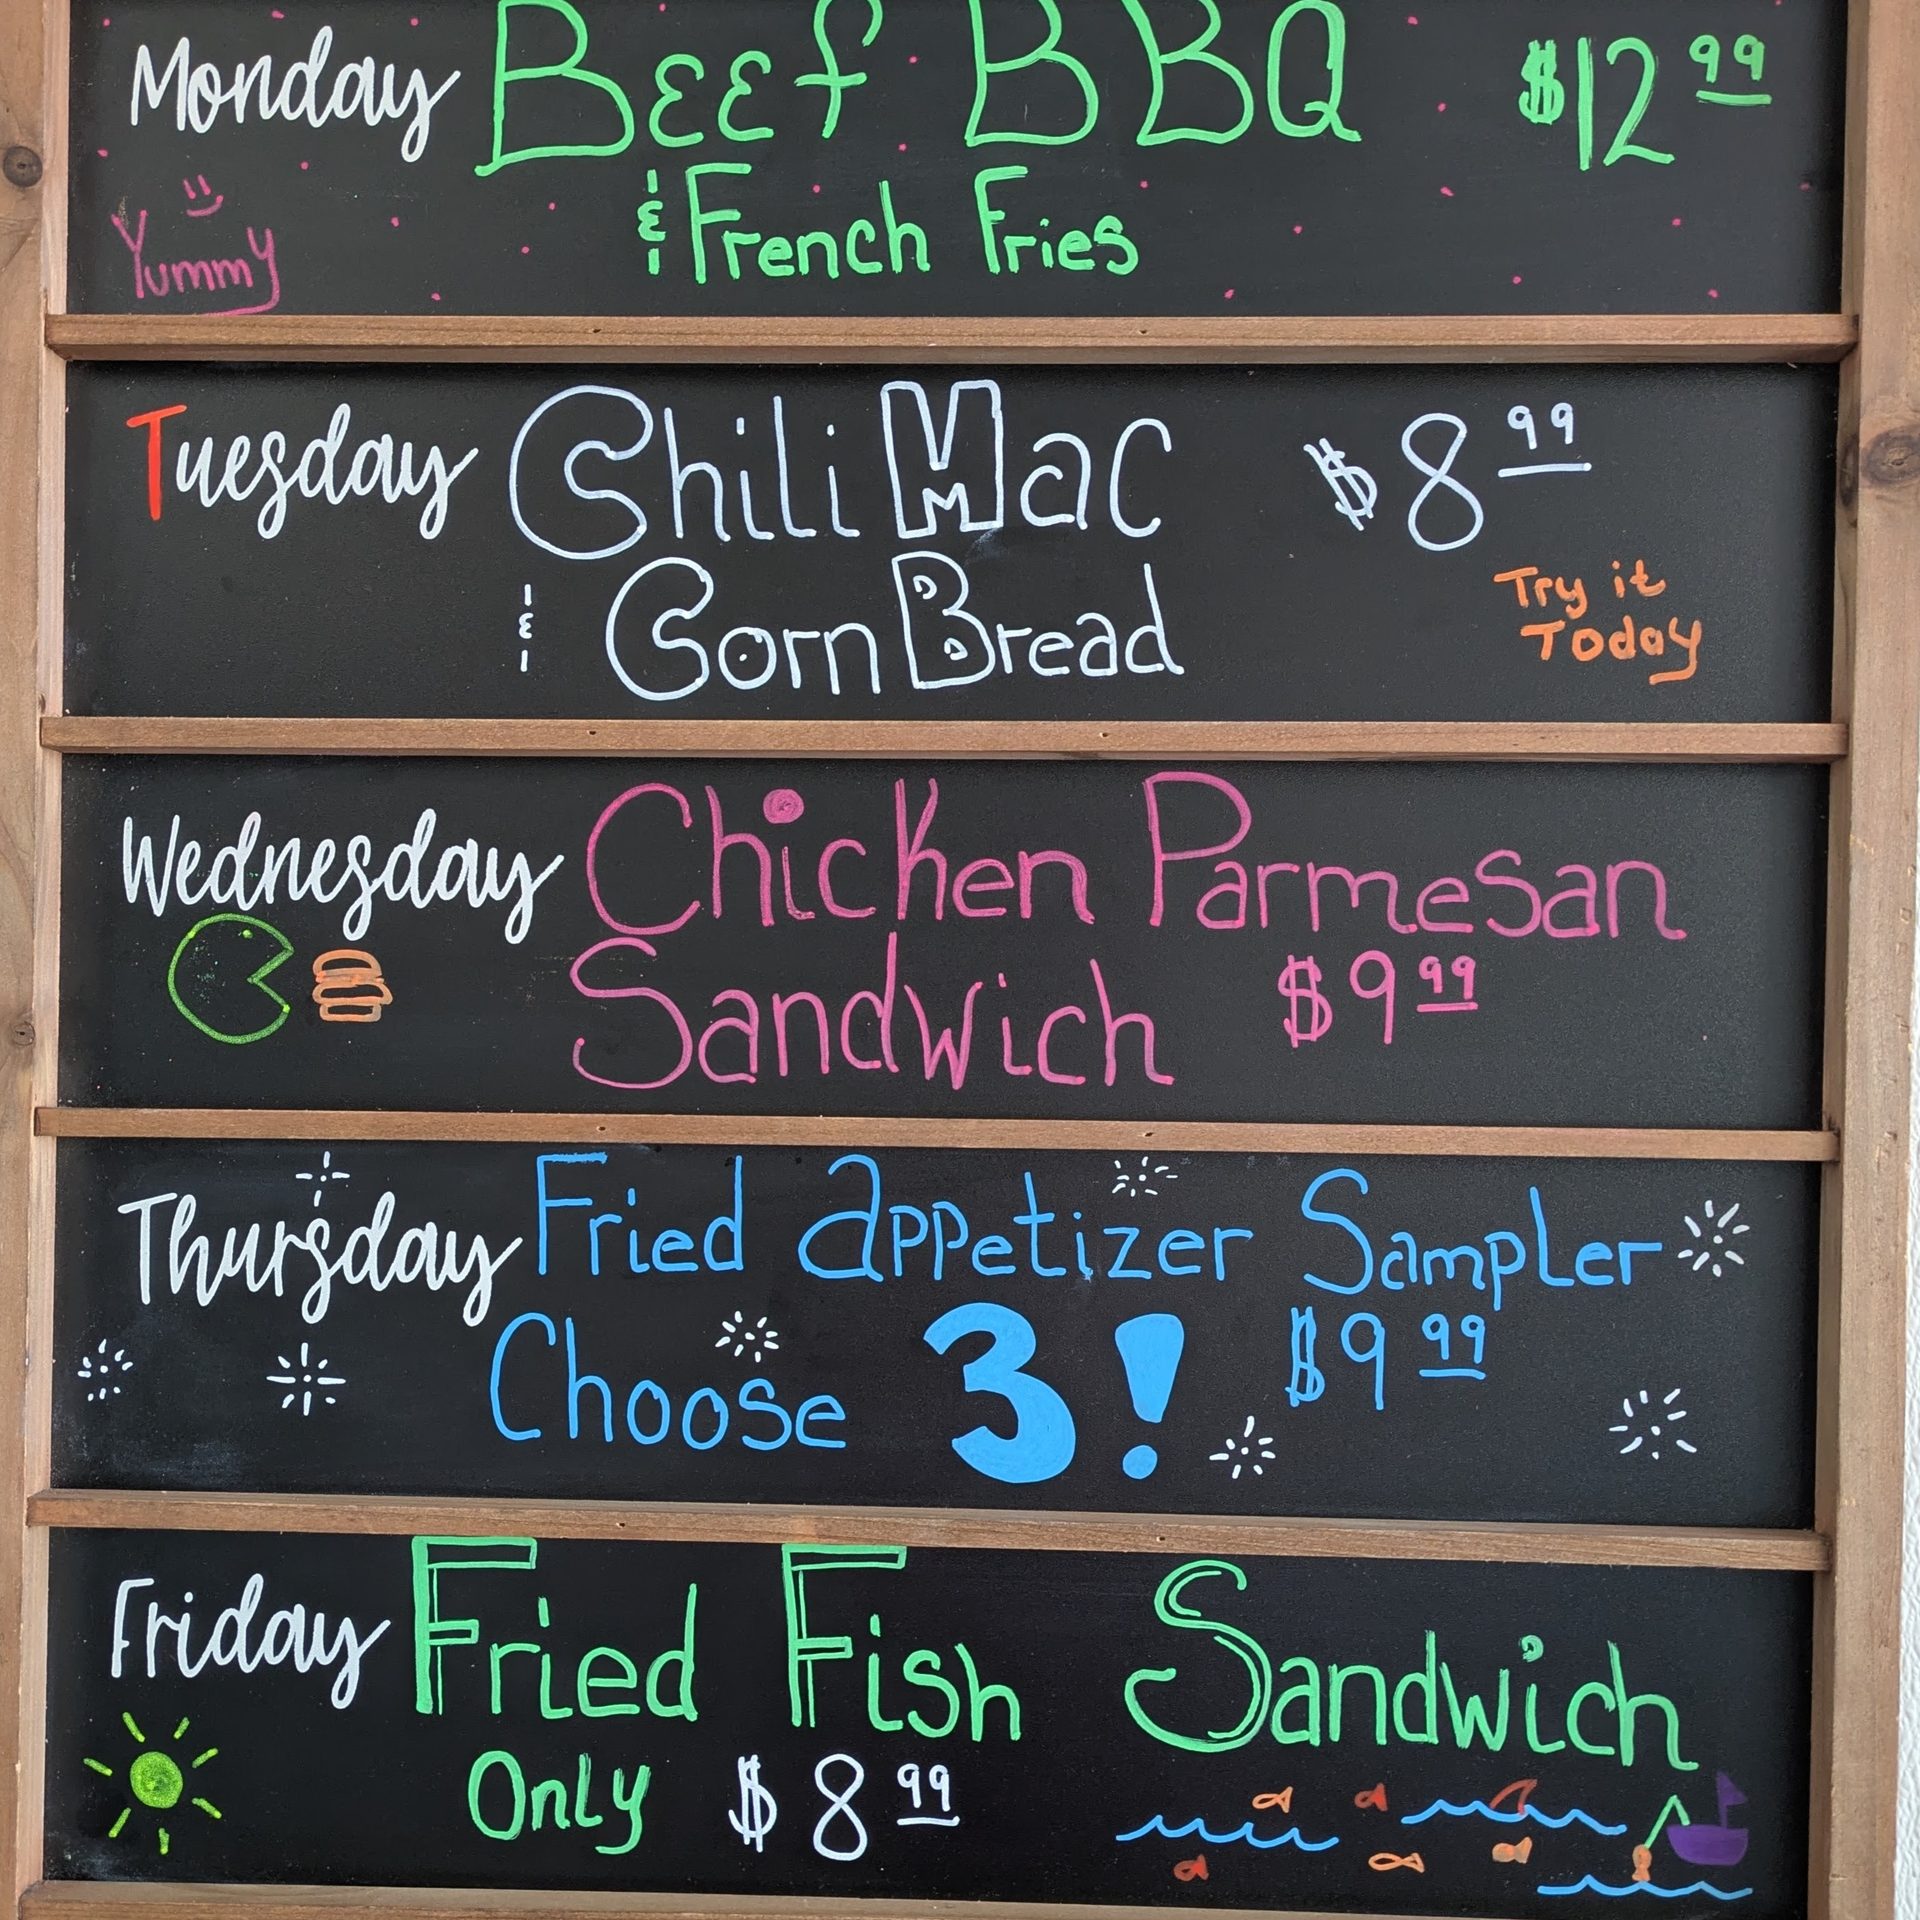 Monday Beef BBQ $12 99
& French Fries
Yummy
Tuesday Chili Mac $8 99
& Corn Bread
Try it
Today
Wednesday Chicken Parmesan
Sandwich $9 99
Thursday Fried Appetizer Sampler
Choose 3! $9 99
Friday Fried Fish Sandwich
Only $8 99